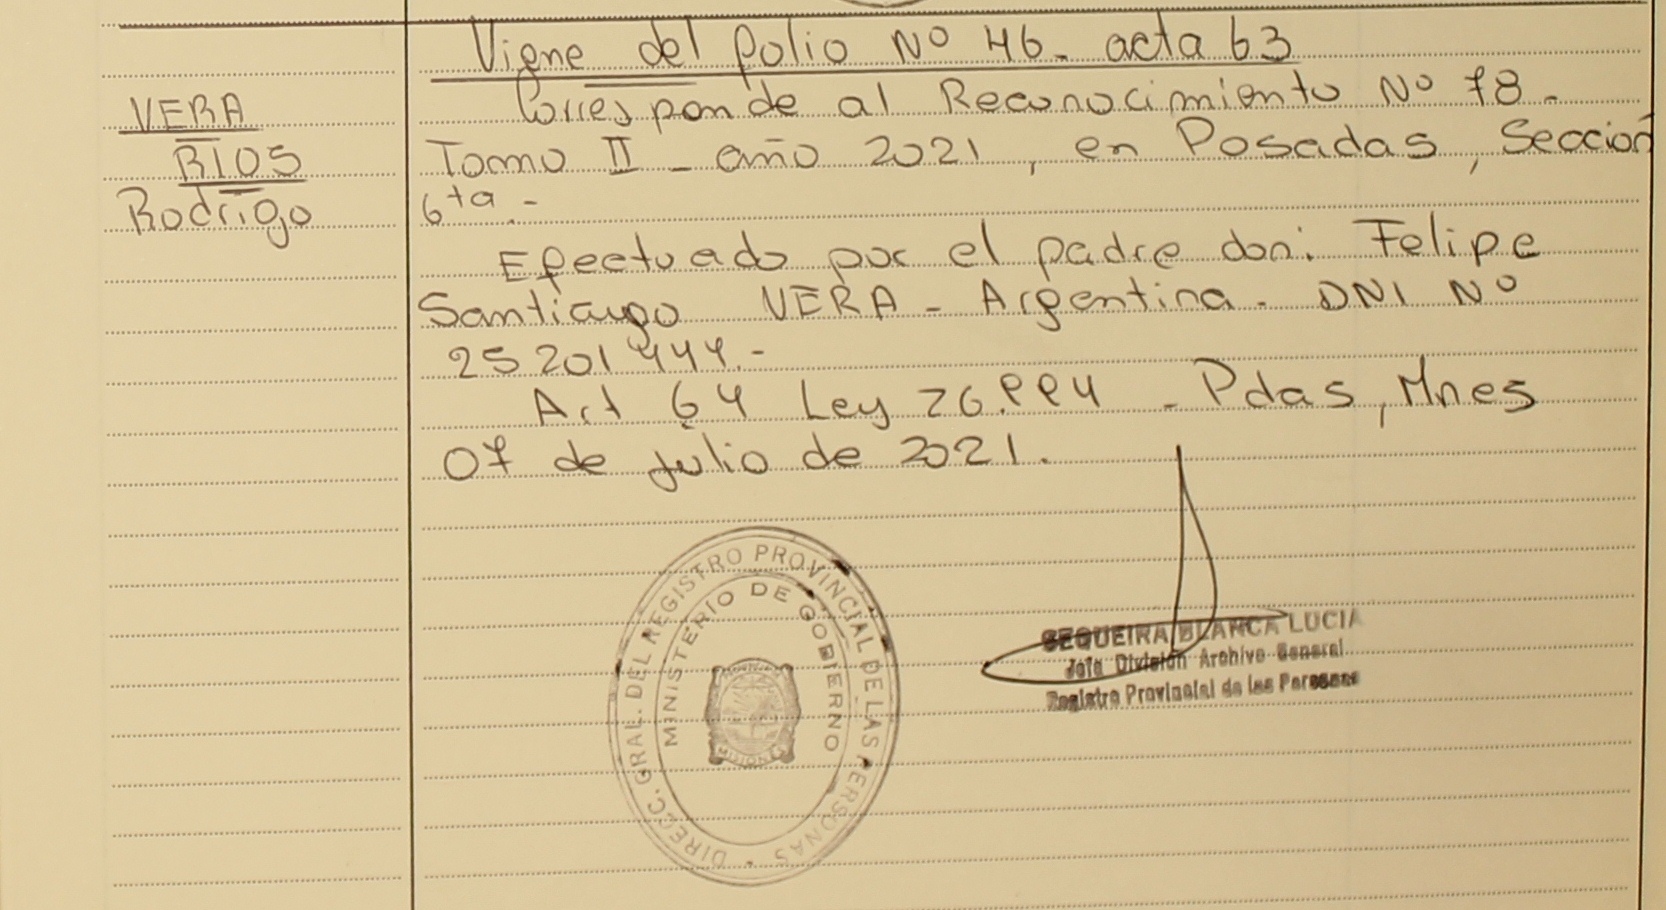 Viene del folio Nº 46- acta 63
VERA
RIOS
Rodrigo
Corresponde al Reconocimiento Nº 78-
Tomo II - año 2021, en Posadas, Sección
6ta.-
Efectuado por el padre don: Felipe
Santiago VERA - Argentina. DNI Nº
25201444.-
Art 64 Ley 26.994 - Pdas, Mnes
07 de julio de 2021.
DIRECC. GRAL. DEL REGISTRO PROVINCIAL DE LAS PERSONAS
MINISTERIO DE GOBIERNO
MISIONES
SEQUEIRA BLANCA LUCIA
Jefa División Archivo General
Registro Provincial de las Personas